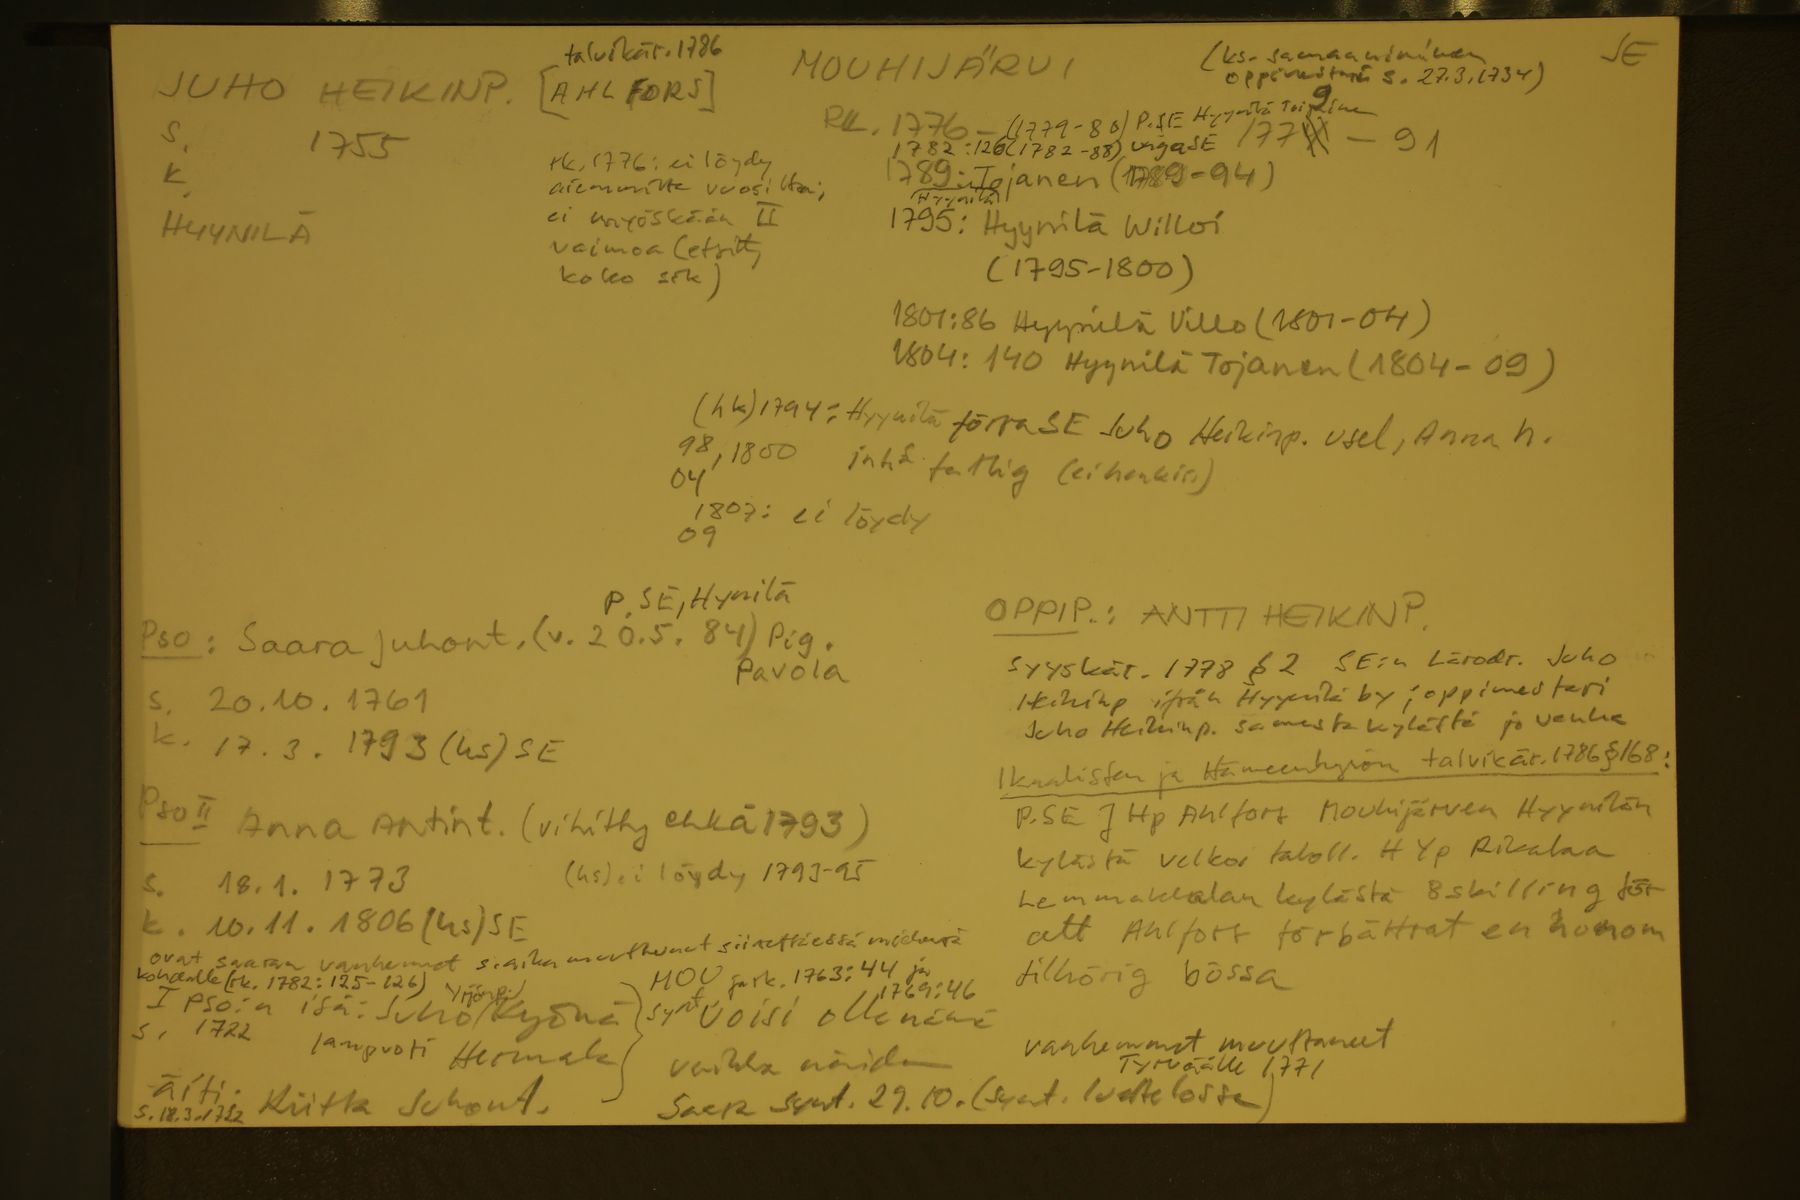 talvikär. 1786
JUHO HEIKINP. [AHLFORS]
MOUHIJÄRVI
(ks. samanniminen
oppimestari s. 27.3.1734)
SE
s. 1755
k.
HYYNILÄ
rk. 1776: ei löydy
aiemmilta vuosilta;
ei myöskään II
vaimoa (etsitty
koko srk)
RK. 1776 - (1779-80) P.SE Hyynilä
9
177 - 91
1782:126 (1782-88) SE
1789: Tojanen (1789-94)
Hyynilä
1795: Hyynilä Willoi
(1795-1800)
1801:86 Hyynilä Villo (1801-04)
1804: 140 Hyynilä Tojanen (1804-09)
(hk) 1794: Hyynilä förra SE Juho Heikinp. usel, Anna h.
98, 1800 inhå fattig (ei henkis)
04
1807: ei löydy
09
P. SE, Hyynilä
Pso: Saara Juhont. (v. 20.5. 84) Pig.
Pavola
s. 20.10.1761
k. 17.3. 1793 (hs) SE
Pso II Anna Antint. (vihitty ehkä 1793)
s. 18.1. 1773
(hs) ei löydy 1793-95
k. 10.11. 1806 (hs) SE
ovat saaran vanhemmat s.aika muuttunut siirettäessä
kohdalle (rk. 1782: 125-126)
I PSO:n isä: Juho Yrjönp. Kyönä
s. 1722
lampuoti Hermala
äiti: Riitta Juhont.
s. 18.3.1722
MOU rk. 1763:44 ja
1769:46
synt voisi olla nämä
vaikka näiden
Saara synt. 29.10. (synt. luettelossa)
OPPIP.: ANTTI HEIKINP.
syyskär. 1778 § 2 SE:n Lärodr. Juho
Heikinp ifrån Hyynilä by; oppimestari
Juho Heikinp. samasta kylästä jo vanha
Ikaalisten ja Hämeenkyrön talvikär. 1786 § 168:
P.SE J Hp Ahlfors Mouhijärven Hyynilän
kylästä velkoi taloll. H Yp Rikalaa
Lemmakkalan kylästä 8 skilling för
att Ahlfors förbättrat en honom
tilhörig bössa
vanhemmat muuttaneet
Tyrväälle 1771